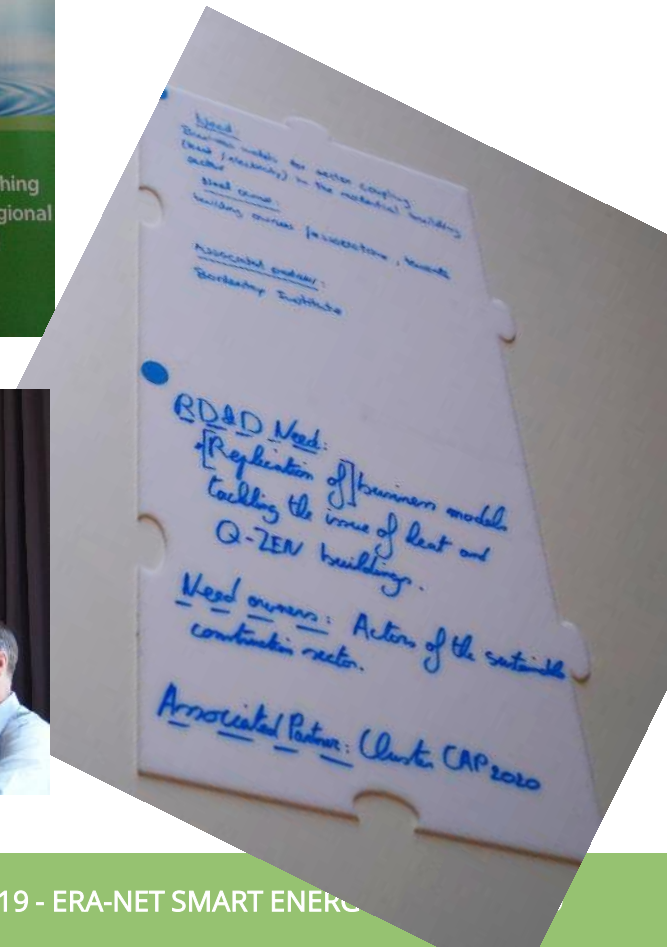 hing
gional
Need:
Business models for sector coupling
(heat / electricity) in the residential building
sector
Need owner:
building owners / associations, tenants
Associated partner:
Borderstep Institute
RD&D Need:
[Replication of] business models
tackling the issue of heat and
Q-ZEN buildings.
Need owners: Actors of the sustainable
construction sector.
Associated Partner: Cluster CAP2020
19 - ERA-NET SMART ENERG